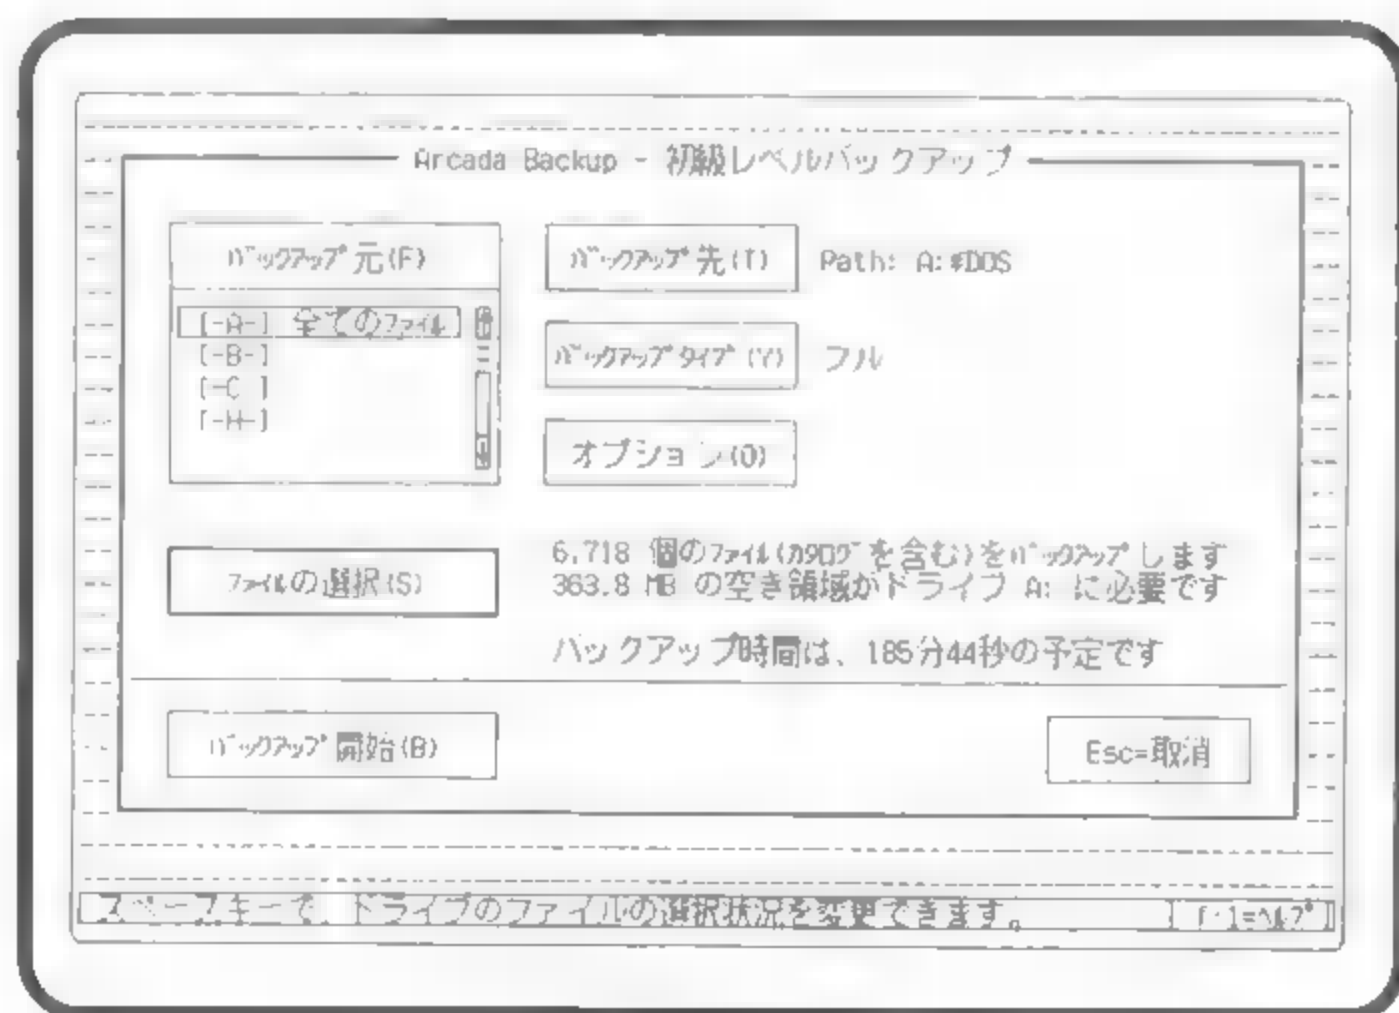 Arcada Backup - 初級レベルバックアップ
ﾊﾞｯｸｱｯﾌﾟ元(F)
[-A-] 全てのﾌｧｲﾙ
[-B-]
[-C ]
[-H-]
ﾊﾞｯｸｱｯﾌﾟ先(T) Path: A:¥DOS
ﾊﾞｯｸｱｯﾌﾟﾀｲﾌﾟ(Y) フル
オプション(O)
ﾌｧｲﾙの選択(S)
6,718 個のﾌｧｲﾙ(ｶﾀﾛｸﾞを含む)をﾊﾞｯｸｱｯﾌﾟします
363.8 MB の空き領域がドライブ A: に必要です
バックアップ時間は、185分44秒の予定です
ﾊﾞｯｸｱｯﾌﾟ開始(B)
Esc=取消
スペースキーで、ドライブのファイルの選択状況を変更できます。
f･1=ﾍﾙﾌﾟ